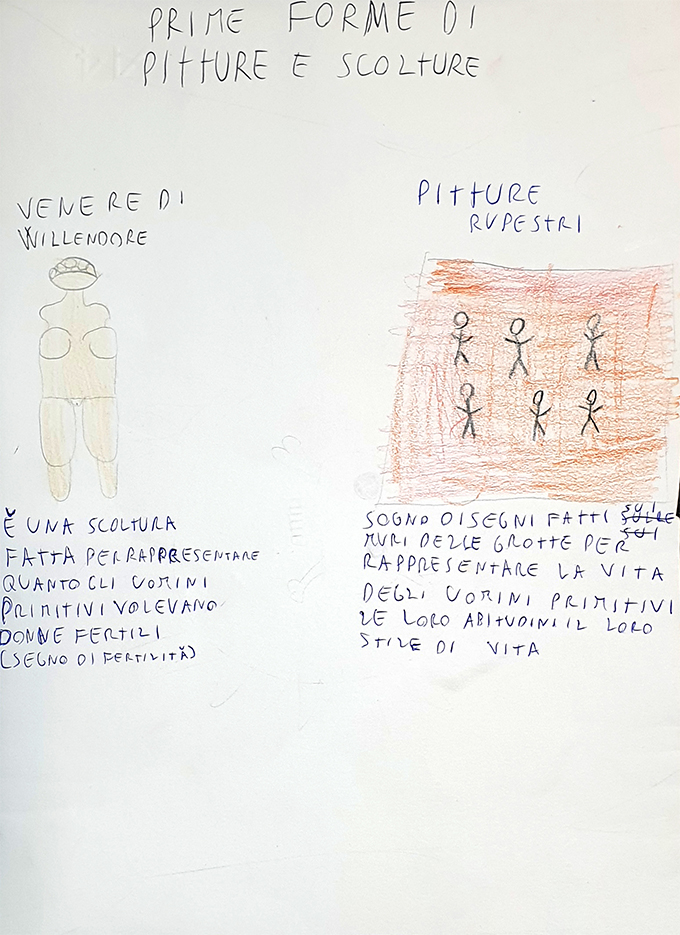 PRIME FORME DI
PITTURE E SCOLTURE
VENERE DI
WILLENDORE
È UNA SCOLTURA
FATTA PER RAPPRESENTARE
QUANTO GLI UOMINI
PRIMITIVI VOLEVANO
DONNE FERTILI
(SEGNO DI FERTILITÀ)
PITTURE
RUPESTRI
SOGNO DISEGNI FATTI SUI
MURI DELLE GROTTE PER
RAPPRESENTARE LA VITA
DEGLI UOMINI PRIMITIVI
LE LORO ABITUDINI IL LORO
STILE DI VITA